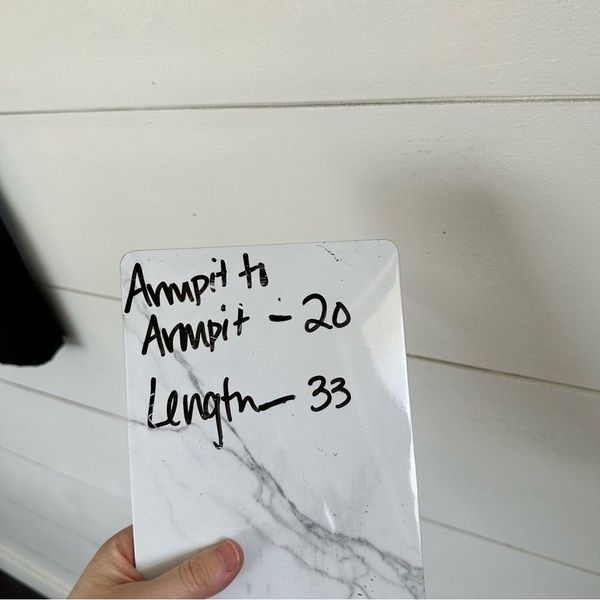 Armpit to
Armpit - 20
Length - 33